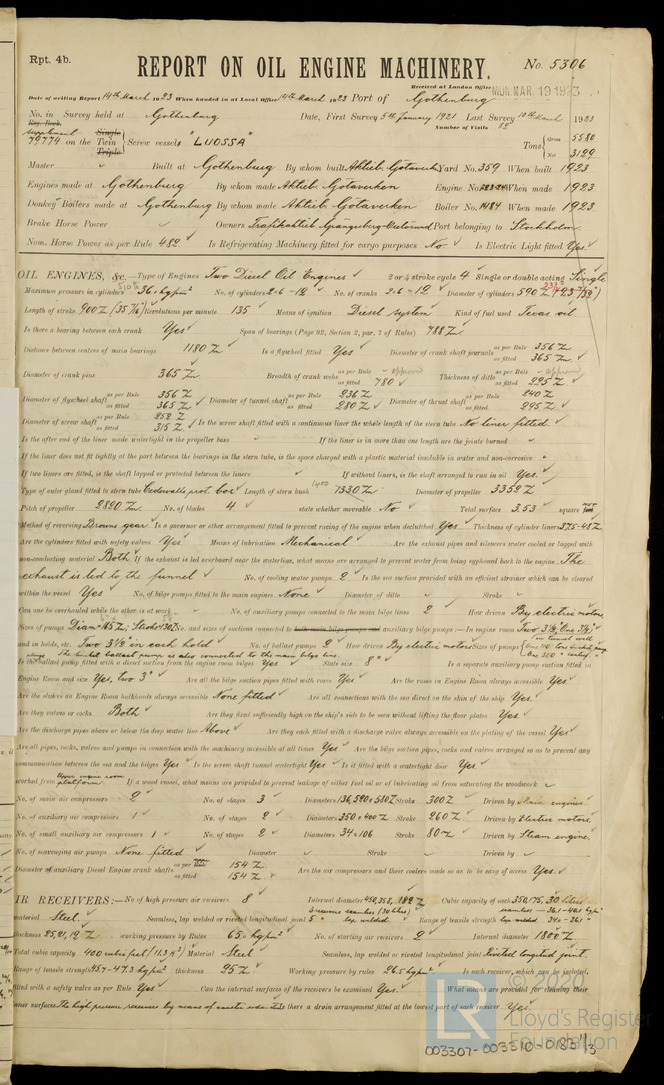 Rpt. 4b.
REPORT ON OIL ENGINE MACHINERY.
No. 5306
Received at London Office MON MAR 19 1923
Date of writing Report 14th March 1923 When handed in at Local Office 14th March 1923 Port of Gothenburg
No. in Survey held at Gothenburg Date, First Survey 5th January 1921 Last Survey 10th March 1923
Reg. Book. Number of Visits 82
Supplement 79779 on the Single Twin Triple Screw vessels "LUOSSA" Tons Gross 5580 Net 3129
Master Built at Gothenburg By whom built Aktieb. Götaverken Yard No. 359 When built 1923
Engines made at Gothenburg By whom made Aktieb. Götaverken Engine No. When made 1923
Donkey Boilers made at Gothenburg By whom made Aktieb. Götaverken Boiler No. 1484 When made 1923
Brake Horse Power Owners Port belonging to Stockholm
Nom. Horse Power as per Rule 482 Is Refrigerating Machinery fitted for cargo purposes No Is Electric Light fitted Yes
OIL ENGINES, &c.—Type of Engines Two Diesel Oil Engines 2 or 4 stroke cycle 4 Single or double acting Single
Maximum pressure in cylinders No. of cylinders 2·6-12 No. of cranks 2·6-12 Diameter of cylinders 590
Length of stroke 900 Revolutions per minute 135 Means of ignition Diesel System Kind of fuel used Texas oil
Is there a bearing between each crank Yes Span of bearings (Page 92, Section 2, par. 7 of Rules) 788
Distance between centres of main bearings 1180 Is a flywheel fitted Yes Diameter of crank shaft journals as per Rule 356 as fitted 365
Diameter of crank pins 365 Breadth of crank webs as per Rule approved as fitted 780 Thickness of ditto as per Rule approved as fitted 225
Diameter of flywheel shaft as per Rule 356 as fitted 365 Diameter of tunnel shaft as per Rule 236 as fitted 280 Diameter of thrust shaft as per Rule 240 as fitted 295
Diameter of screw shaft as per Rule 252 as fitted 315 Is the screw shaft fitted with a continuous liner the whole length of the stern tube No liner fitted.
Is the after end of the liner made watertight in the propeller boss If the liner is in more than one length are the joints burned
If the liner does not fit tightly at the part between the bearings in the stern tube, is the space charged with a plastic material insoluble in water and non-corrosive
If two liners are fitted, is the shaft lapped or protected between the liners If without liners, is the shaft arranged to run in oil Yes.
Type of outer gland fitted to stern tube Cederwalls Length of stern bush 1330 Diameter of propeller 3352
Pitch of propeller 2820 No. of blades 4 state whether moveable No Total surface 3.53 square
Method of reversing Browns gear. Is a governor or other arrangement fitted to prevent racing of the engine when declutched Yes Thickness of cylinder liners
Are the cylinders fitted with safety valves Yes Means of lubrication Mechanical Are the exhaust pipes and silencers water cooled or lagged with
non-conducting material Both If the exhaust is led overboard near the waterline, what means are arranged to prevent water from being syphoned back to the engine The
exhaust is led to the funnel No. of cooling water pumps 2 Is the sea suction provided with an efficient strainer which can be cleared
within the vessel Yes No. of bilge pumps fitted to the main engines None Diameter of ditto Stroke
Can one be overhauled while the other is at work No. of auxiliary pumps connected to the main bilge lines 2 How driven By electric motors
Sizes of pumps No. and sizes of suctions connected to both main bilge pumps and auxiliary bilge pumps:—In engine room Two 3½, One 3½
and in holds, etc. Two 3½" in each hold No. of ballast pumps 2 How driven By electric motors Sizes of pumps
Is the ballast pump fitted with a direct suction from the engine room bilges Yes State size 8" Is a separate auxiliary pump suction fitted in
Engine Room and size Yes, two 3" Are all the bilge suction pipes fitted with roses Yes Are the roses in Engine Room always accessible Yes
Are the sluices on Engine Room bulkheads always accessible None fitted Are all connections with the sea direct on the skin of the ship Yes.
Are they valves or cocks Both Are they fixed sufficiently high on the ship's side to be seen without lifting the floor plates Yes
Are the discharge pipes above or below the deep water line Above Are they each fitted with a discharge valve always accessible on the plating of the vessel Yes
Are all pipes, cocks, valves and pumps in connection with the machinery accessible at all times Yes Are the bilge suction pipes, cocks and valves arranged so as to prevent any
communication between the sea and the bilges Yes Is the screw shaft tunnel watertight Yes Is it fitted with a watertight door Yes
worked from Upper engine room platform If a wood vessel, what means are provided to prevent leakage of either fuel oil or of lubricating oil from saturating the woodwork
No. of main air compressors 2 No. of stages 3 Diameters 136, 520 & 580 Stroke 300 Driven by Main engines
No. of auxiliary air compressors 1 No. of stages 2 Diameters 350 & 400 Stroke 260 Driven by Electric motors.
No. of small auxiliary air compressors 1 No. of stages 2 Diameters 34 & 106 Stroke 80 Driven by Steam engine
No. of scavenging air pumps None fitted Diameter Stroke Driven by
Diameter of auxiliary Diesel Engine crank shafts as per Rule 154 as fitted 154 Are the air compressors and their coolers made so as to be easy of access Yes.
IR RECEIVERS:—No of high pressure air receivers 8 Internal diameter Cubic capacity of each 350, 175, 30 litres
material Steel. Seamless, lap welded or riveted longitudinal joint lap welded Range of tensile strength
thickness 25, 21, 12 working pressure by Rules 65 No. of starting air receivers 2 Internal diameter 1800
Total cubic capacity 400 cubic feet (11.3 m³) Material Steel Seamless, lap welded or riveted longitudinal joint Riveted longitud. joint.
Range of tensile strength thickness 25 Working pressure by rules 26.5 Is each receiver, which can be isolated,
fitted with a safety valve as per Rule Yes Can the internal surfaces of the receivers be examined Yes. What means are provided for cleaning their
inner surfaces The high pressure receivers by means of Is there a drain arrangement fitted at the lowest part of each receiver Yes.
© 2020
Lloyd's Register
Foundation
003307-003310-0183 1/3